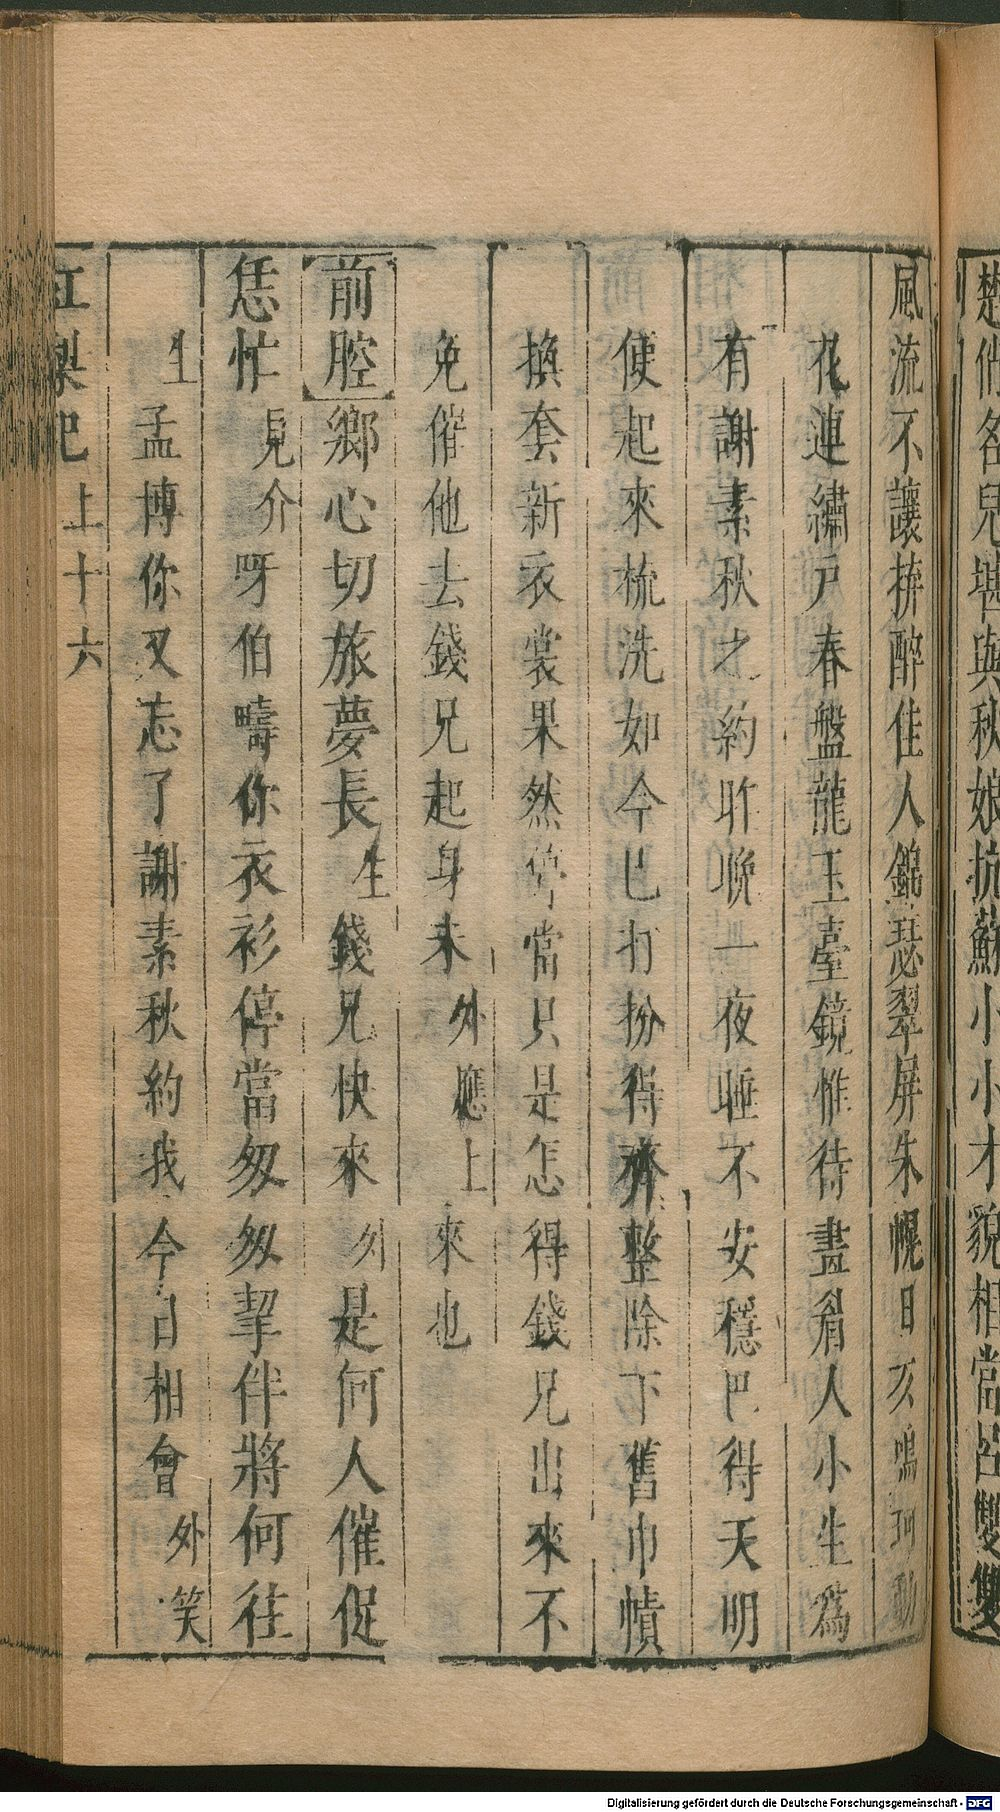 楚他名兒堪與秋娘抗蘇小小才貌相當呂雙雙
風流不讓拚醉佳人錦瑟翠屏朱幌日亥鳴珂動
花連繡戶春盤龍玉臺鏡惟待晝眉人小生爲
有謝素秋之約昨晚一夜睡不安穩巴得天明
使起來梳洗如今已打扮得齊整除下舊巾幘
換套新衣裳果然停當只是怎得錢兄出來不
免催他去錢兄起身未外應上來也
前腔鄉心切旅夢長生錢兄快來外是何人催促
恁忙見介呀伯疇你衣衫停當匆匆挈伴將何往
生孟博你又忘了謝素秋約我今日相會外笑
紅梨記 上十六
Digitalisierung gefördert durch die Deutsche Forschungsgemeinschaft - DFG